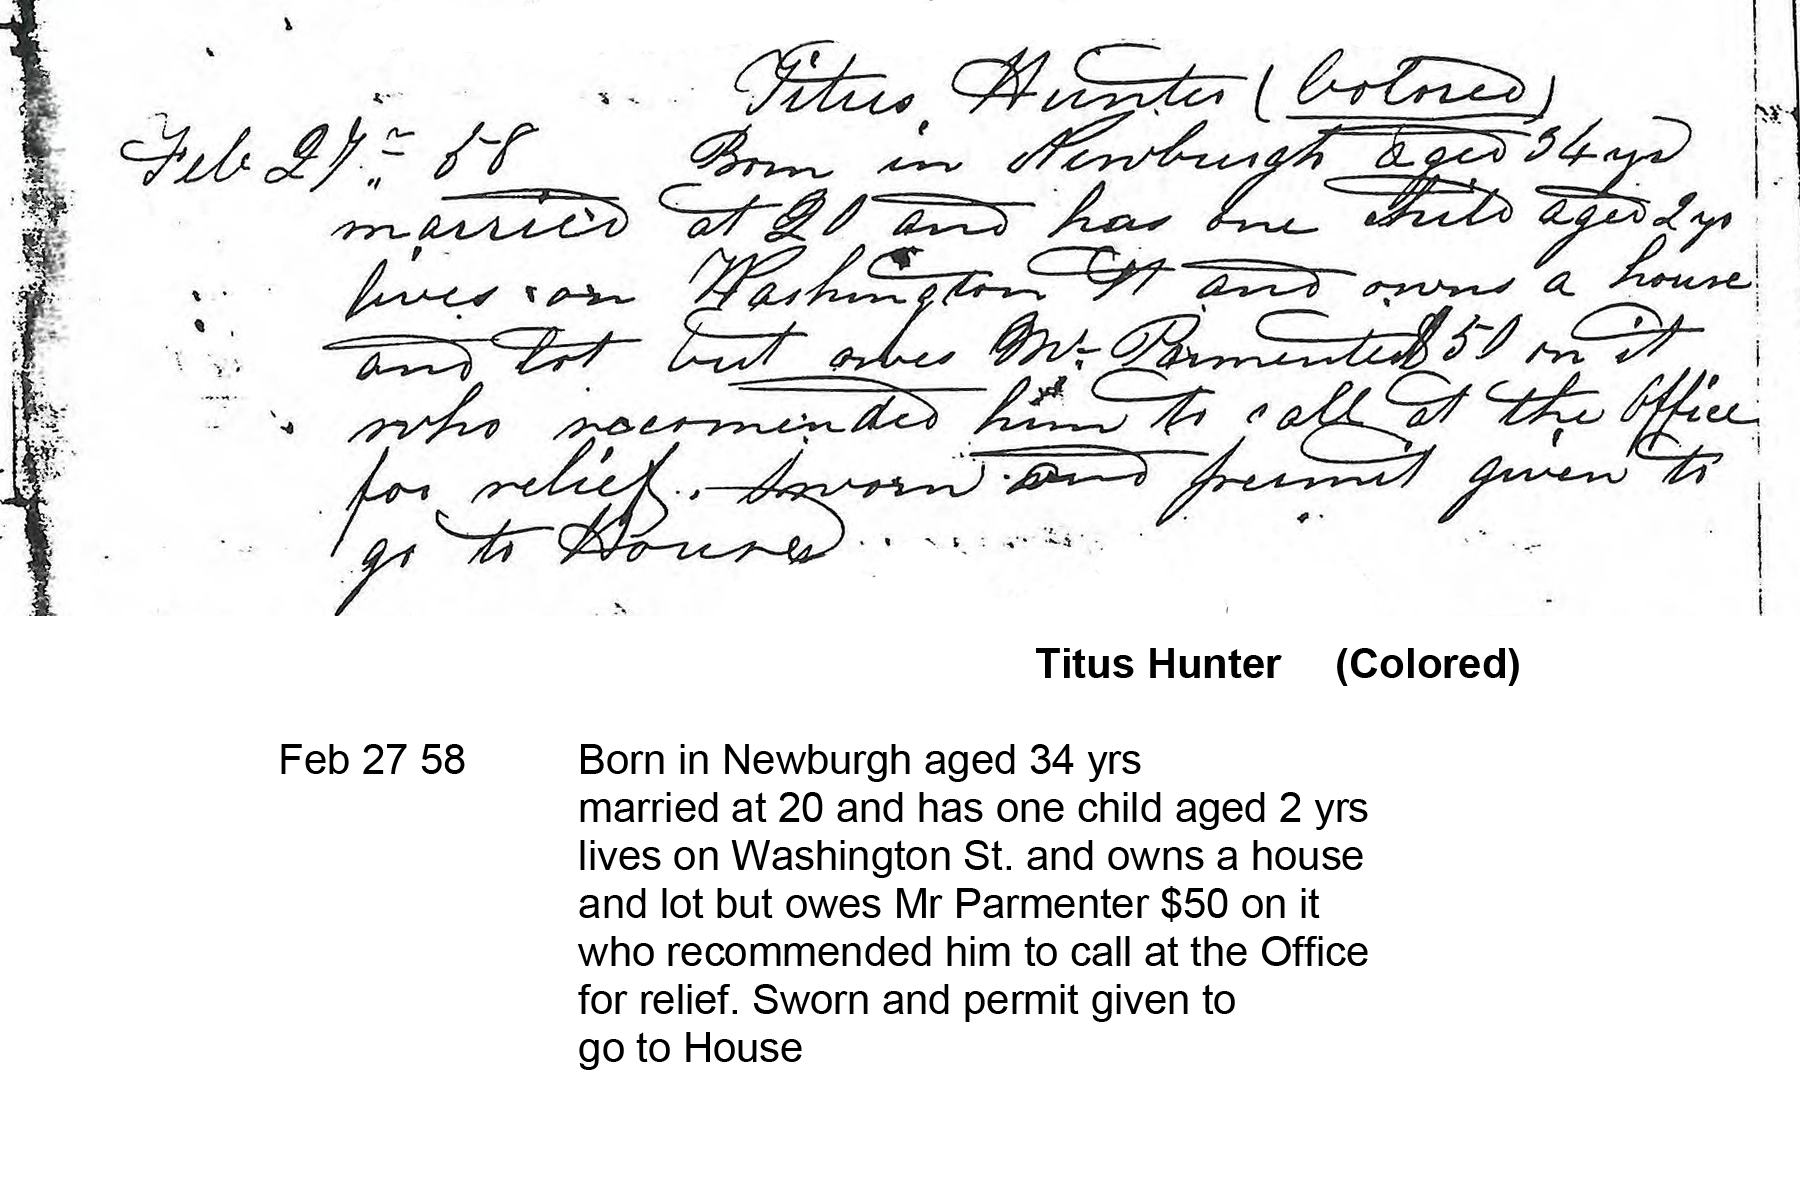 Titus Hunter (Colored)
Feb 27th 58 Born in Newburgh aged 34 yrs
married at 20 and has one child aged 2 yrs
lives on Washington St and owns a house
and lot but owes Mr Parmenter $50 on it
who recomended him to call at the Office
for relief. Sworn and permit given to
go to House
Titus Hunter (Colored)
Feb 27 58 Born in Newburgh aged 34 yrs
married at 20 and has one child aged 2 yrs
lives on Washington St. and owns a house
and lot but owes Mr Parmenter $50 on it
who recommended him to call at the Office
for relief. Sworn and permit given to
go to House